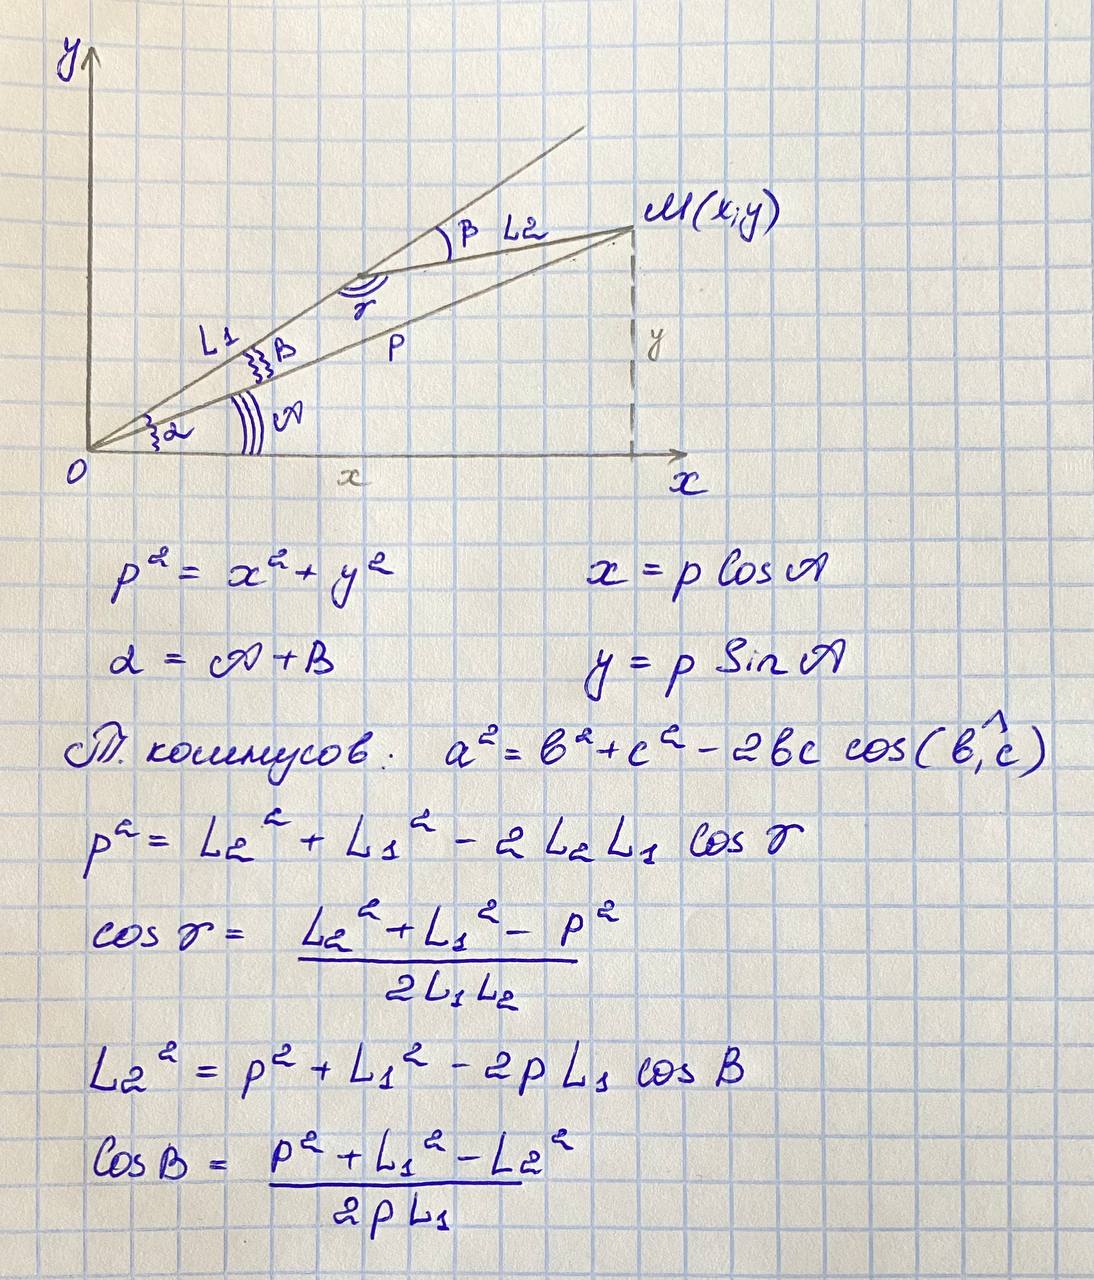 y
M(x;y)
β L2
γ
L1 B p y
α A
O x x
p² = x² + y² x = p Cos A
α = A + B y = p Sin A
Т. косинусов: a² = b² + c² - 2bc cos(b,^c)
p² = L2² + L1² - 2 L2 L1 cos γ
cos γ = L2² + L1² - p²
2 L1 L2
L2² = p² + L1² - 2p L1 cos B
Cos B = p² + L1² - L2²
2p L1